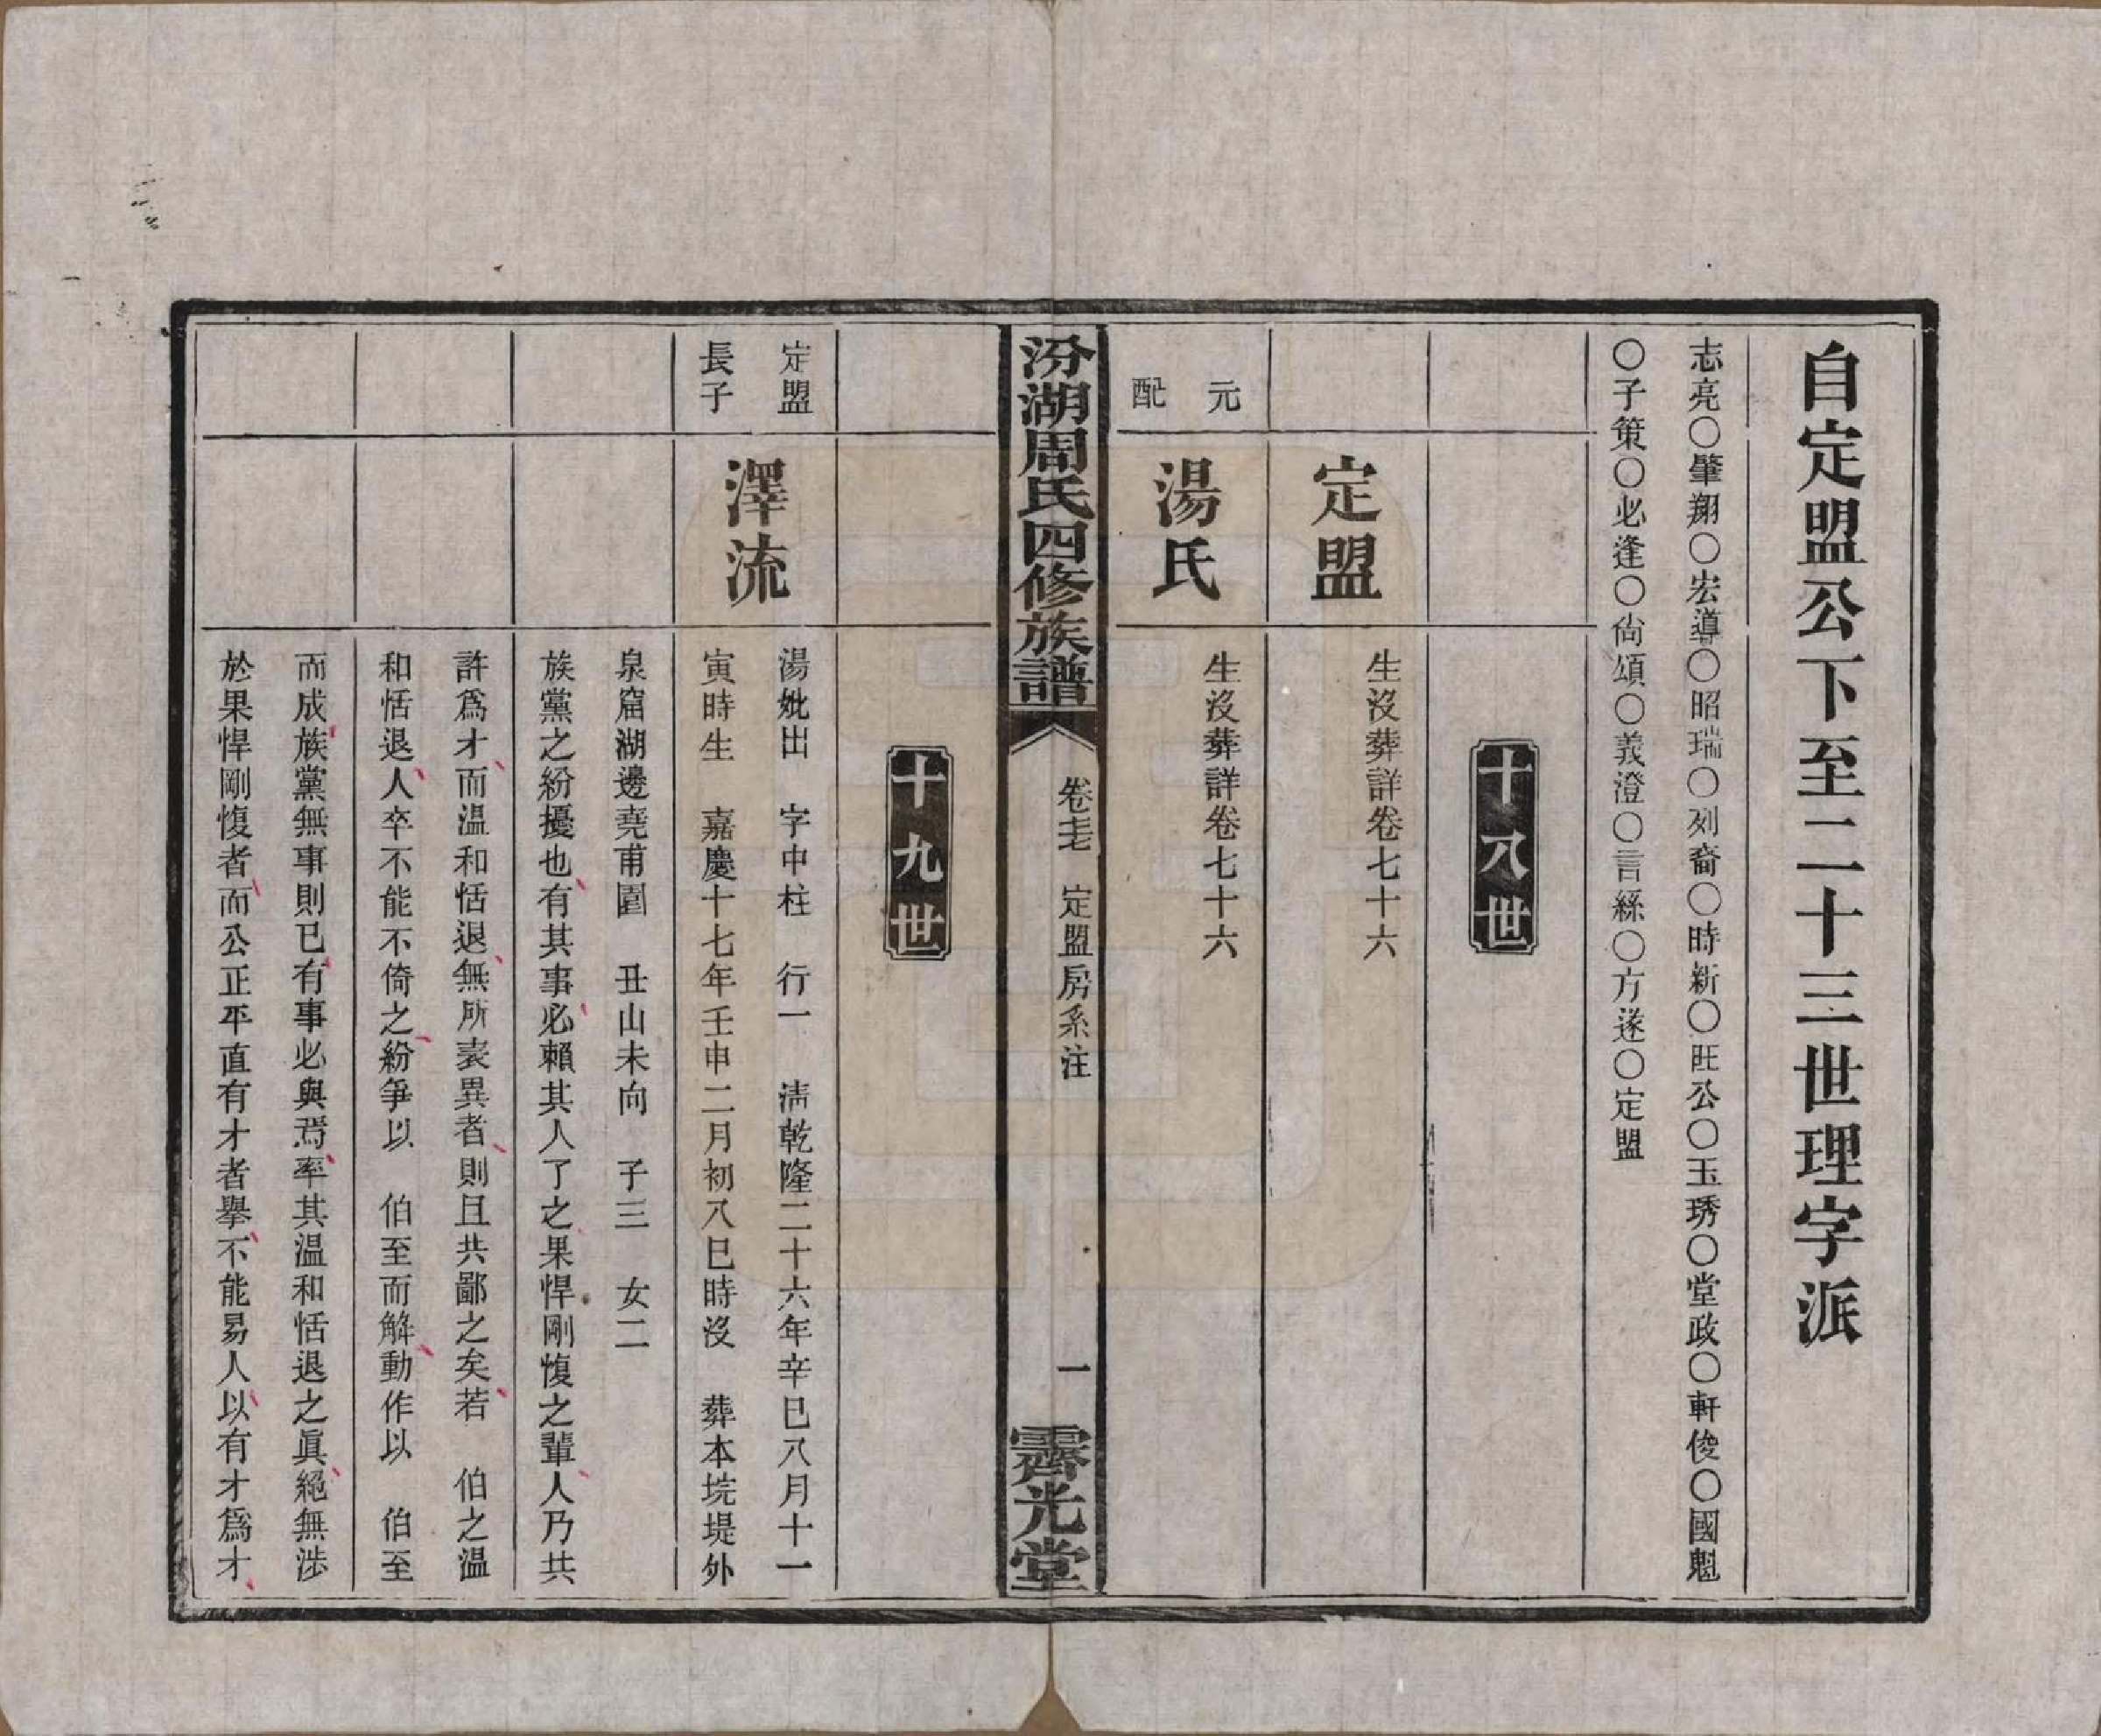 自定盟公下至二十三世理字派
志亮〇肇翔〇宏導〇昭瑞〇列裔〇時新〇旺公〇玉琇〇堂政〇軒俊〇國魁
〇子策〇必逢〇尙頌〇義澄〇言絲〇方遂〇定盟
十八世
定盟
生沒葬詳卷七十六
元配
湯氏
生沒葬詳卷七十六
汾湖周氏四修族譜
卷七七 定盟房系注
一
霽光堂
十九世
定盟
長子
澤流
湯妣出 字中柱 行一 淸乾隆二十六年辛巳八月十一
寅時生 嘉慶十七年壬申二月初八巳時沒 葬本垸堤外
泉窟湖邊堯甫園 丑山未向 子三 女二
族黨之紛擾也有其事必賴其人了之果悍剛愎之輩人乃共
許爲才而溫和恬退無所表異者則且共鄙之矣若 伯之溫
和恬退人卒不能不倚之紛爭以 伯至而解動作以 伯至
而成族黨無事則已有事必與焉率其溫和恬退之眞絕無涉
於果悍剛愎者而公正平直有才者擧不能易人以有才爲才